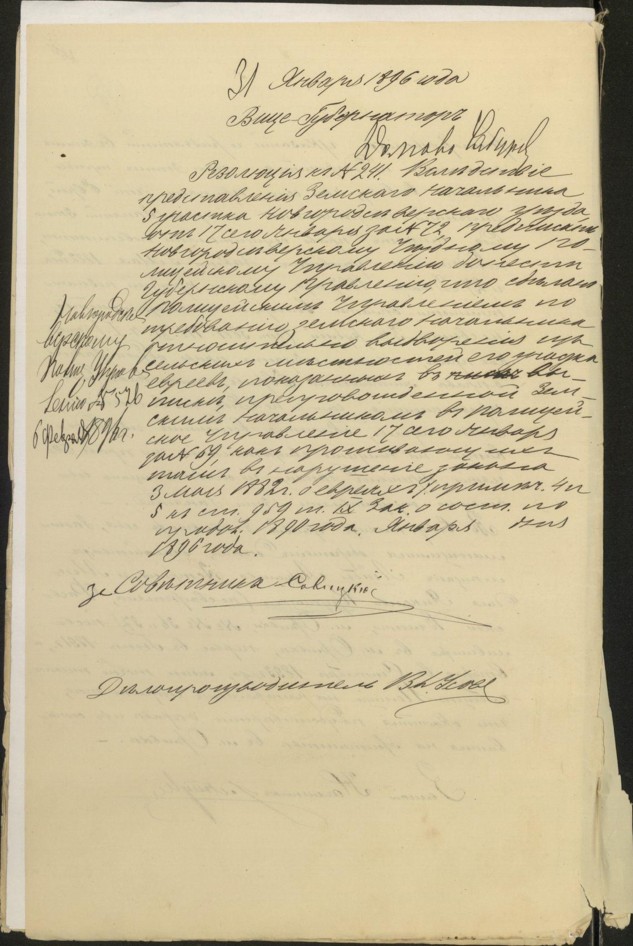 31 Января 1896 года
Вице-Губернаторъ
Резолюція на № 241. Вслѣдствіе
представленія Земскаго Начальника
5 участка Новгородсѣверскаго уѣзда,
отъ 17 сего Января за № 72, предписать
Новгородсѣверскому Уѣздному По-
лицейскому Управленію донести
Губернскому Правленію, что сдѣлано
Полицейскимъ Управленіемъ по
требованію земскаго начальника
относительно выдворенія изъ
сельскихъ мѣстностей его участка
евреевъ, показанныхъ въ вы-
писки, препровожденной Зем-
скимъ Начальникомъ въ Полицей-
ское Управленіе 17 сего Января
за № 69, какъ проживающихъ
тамъ въ нарушеніе закона
3 мая 1882 г. о евреяхъ, примѣч. 4 и
5 къ ст. 959 т. IX Зак. о сост. по
продол. 1890 года. Января дня
1896 года.
Новгородъ
сѣверскому
Полиц. Управ
ленію № 576
6 февраля 1896 г.
За Совѣтника Савицкій
Дѣлопроизводитель